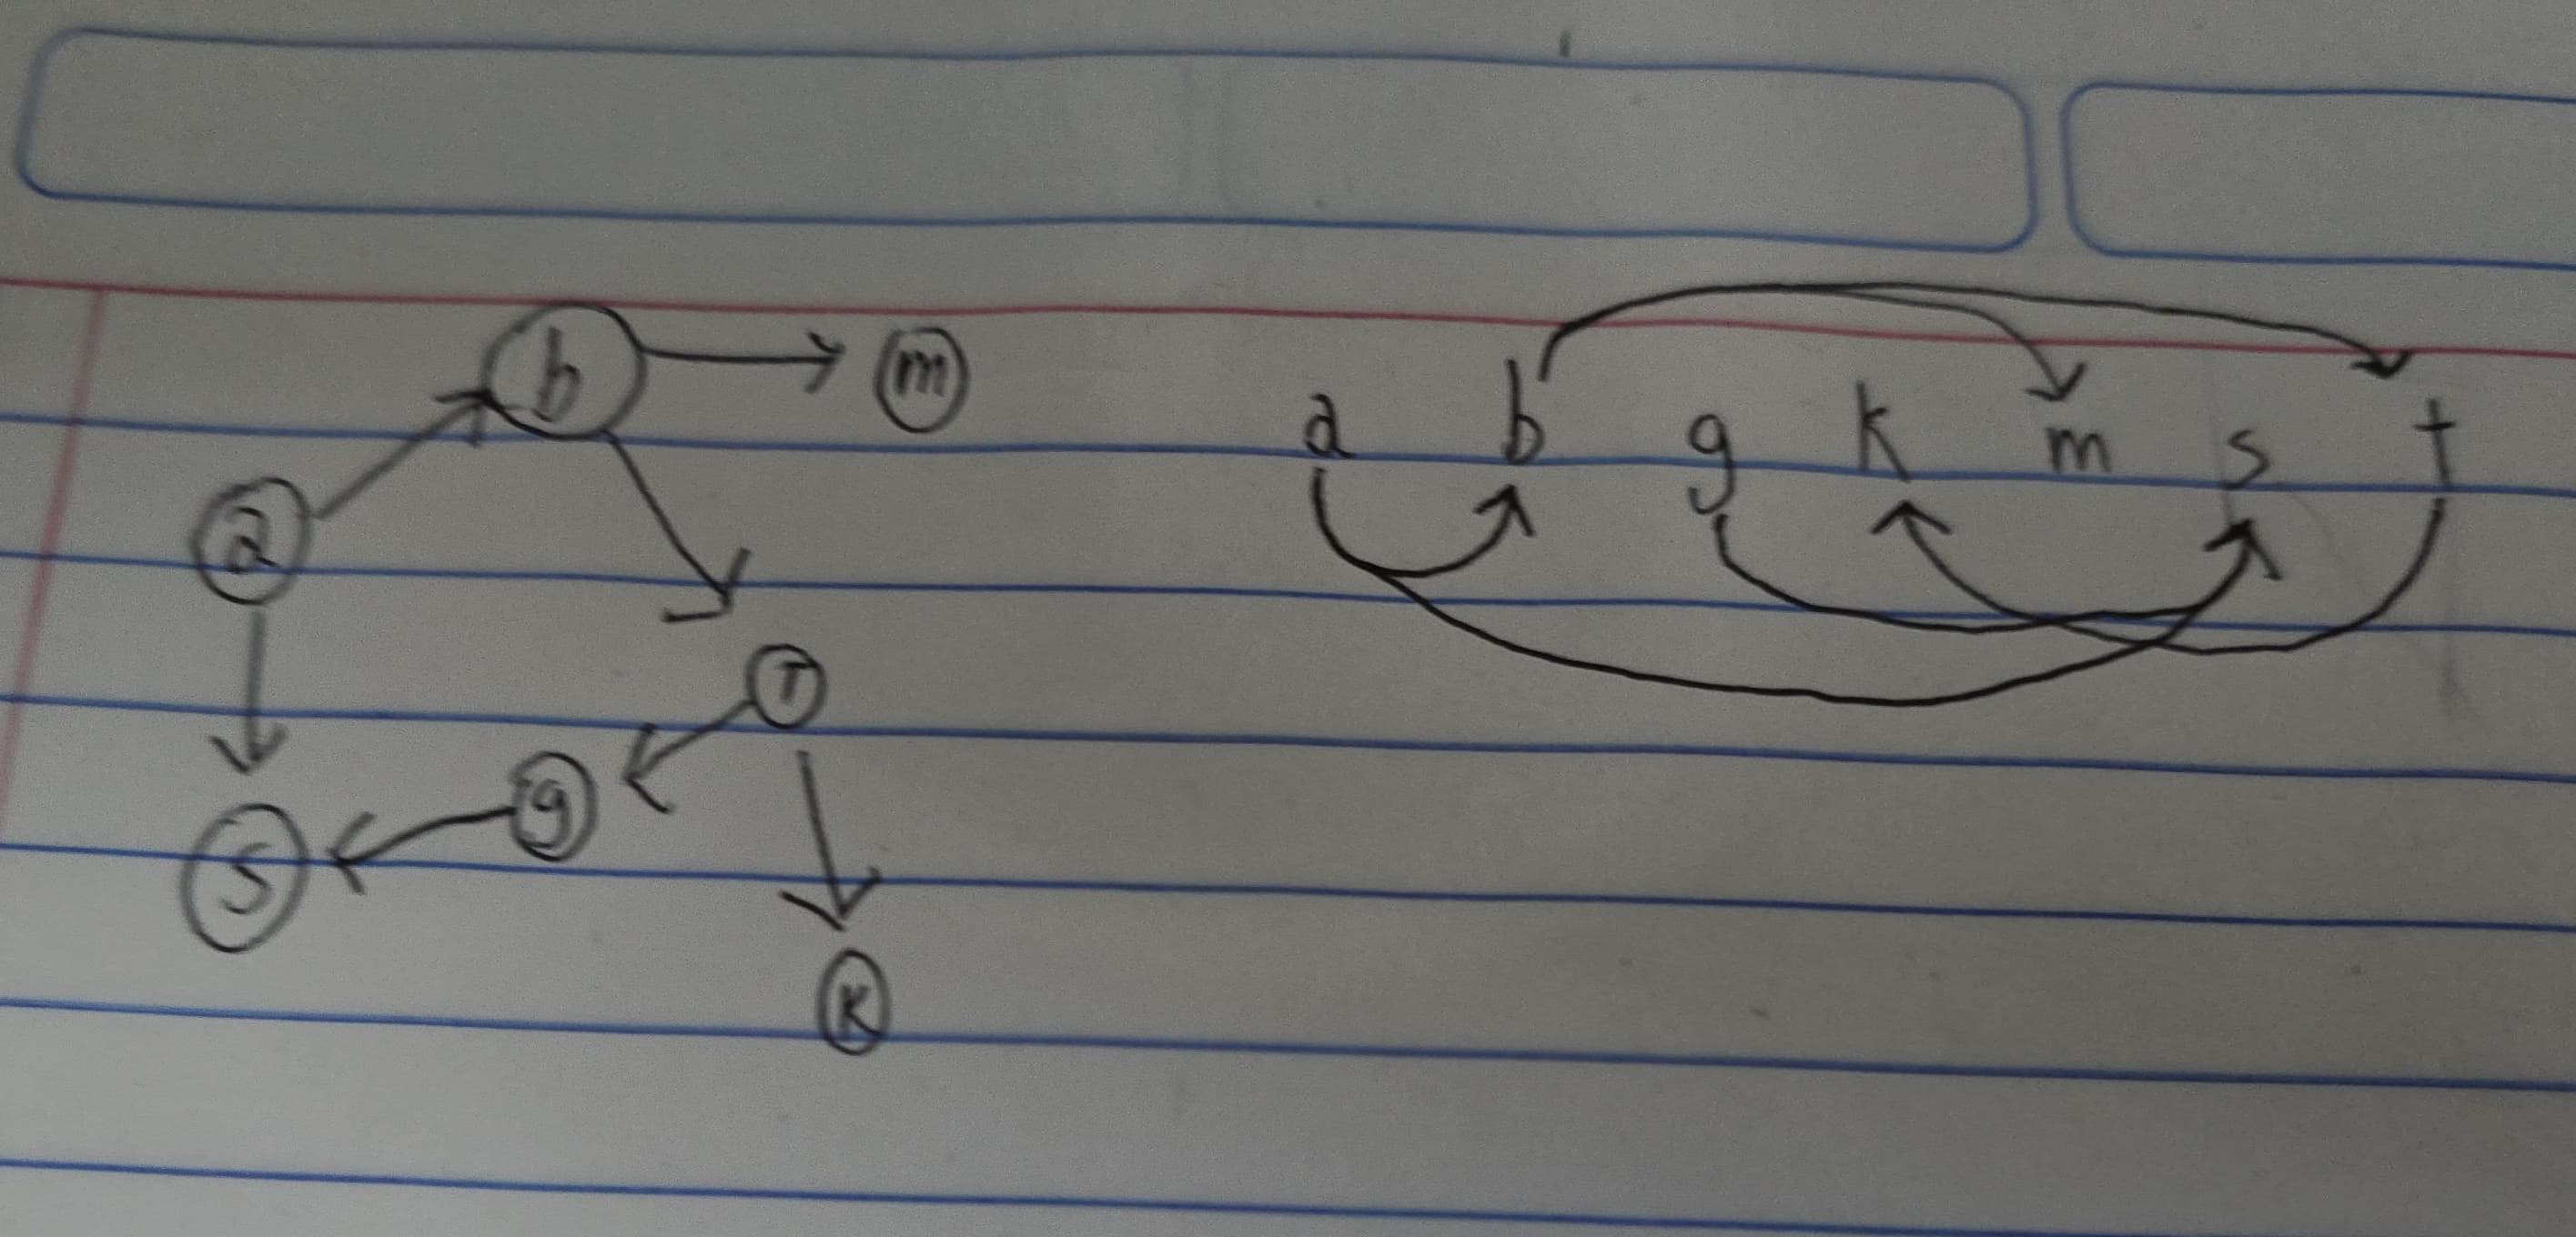 b m
a
T
g
s
K
a b g k m s t